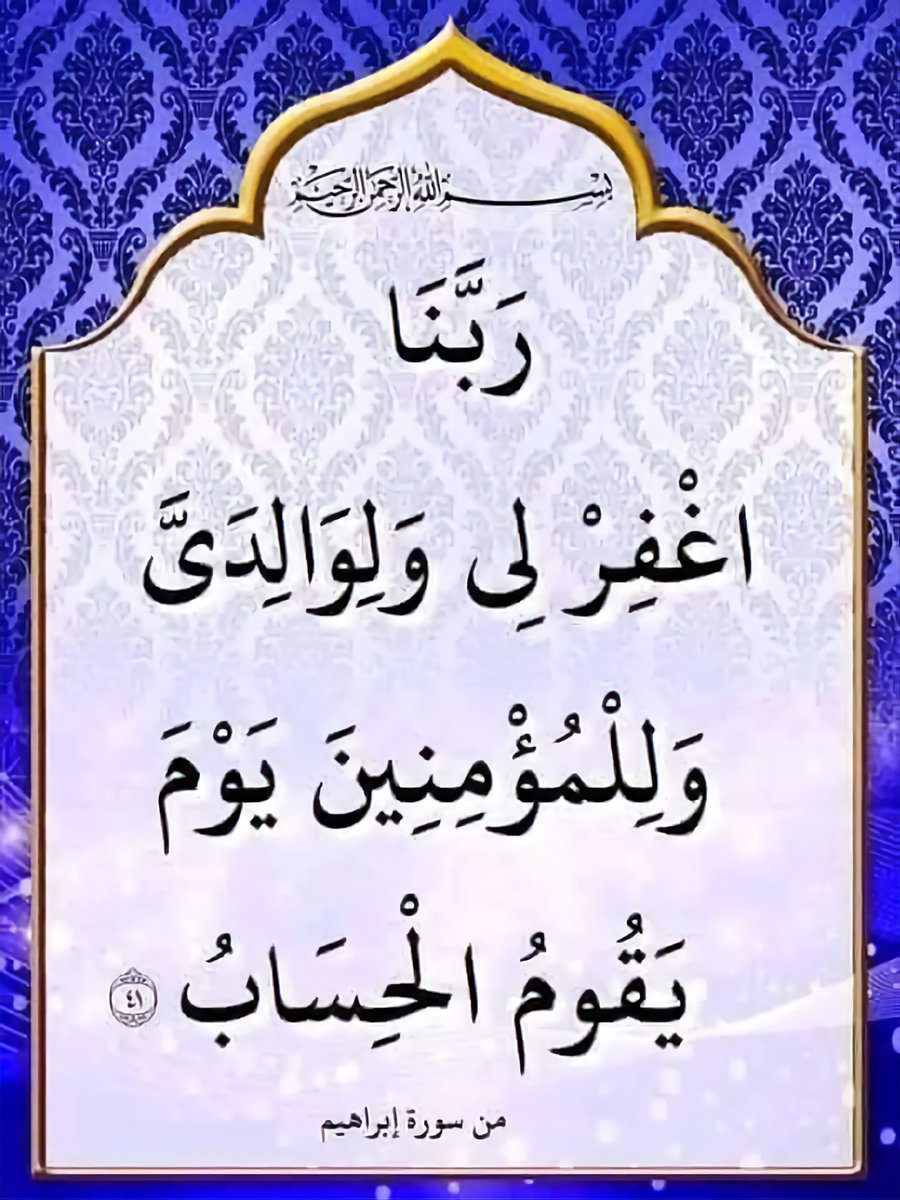 بِسْمِ اللَّهِ الرَّحْمَنِ الرَّحِيمِ
رَبَّنَا
اغْفِرْ لِى وَلِوَالِدَىَّ
وَلِلْمُؤْمِنِينَ يَوْمَ
يَقُومُ الْحِسَابُ ٤١
من سورة إبراهيم